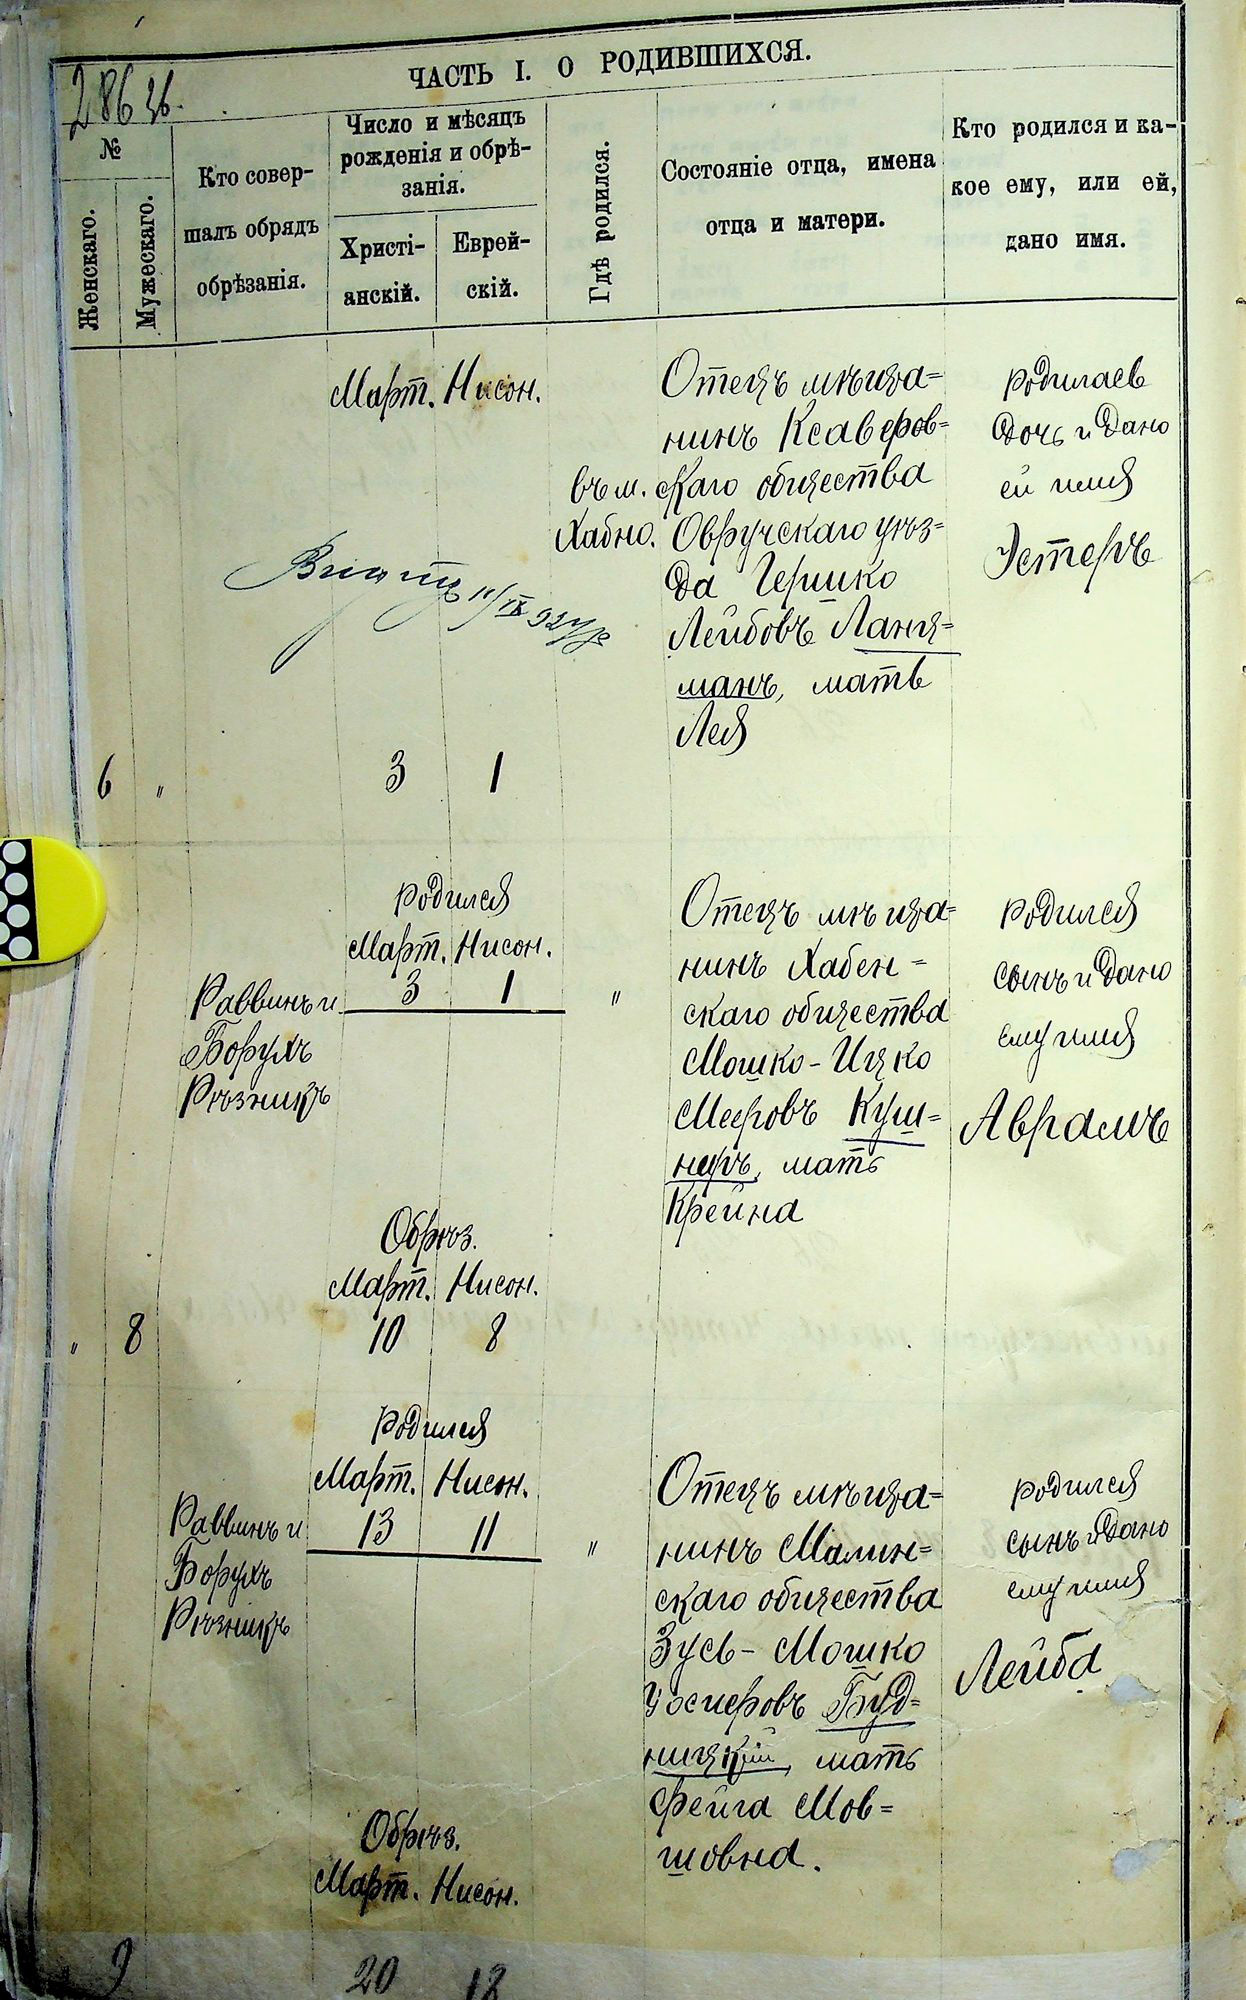 ЧАСТЬ I. О РОДИВШИХСЯ.
286 зв.
№
Женскаго.
Мужескаго.
Кто совер-
шалъ обрядъ
обрѣзанія.
Число и мѣсяцъ
рожденія и обрѣ-
занія.
Христі-
анскій.
Еврей-
скій.
Гдѣ родился.
Состояніе отца, имена
отца и матери.
Кто родился и ка-
кое ему, или ей,
дано имя.
6 〃
Март. Нисон.
3 1
въ м.
Хабно.
Отецъ мѣща=
нинъ Ксаверов=
скаго общества
Овручскаго уѣз=
да Гершко
Лейбовъ Ланц=
манъ, мать
Лея
родилась
дочь и дано
ей имя
Эстеръ
〃 8
Раввинъ и
Борухъ
Рѣзникъ
родился
Март. Нисон.
3 1
Обрѣз.
Март. Нисон.
10 8
〃
Отецъ мѣща=
нинъ Хабен=
скаго общества
Мошко-Ицко
Мееровъ Куш=
неръ, мать
Крейна
родился
сынъ и дано
ему имя
Аврамъ
9
Раввинъ и
Борухъ
Рѣзникъ
Родился
Март. Нисон.
13 11
Обрѣз.
Март. Нисон.
20 18
〃
Отецъ мѣща=
нинъ Малин=
скаго общества
Зусь-Мошко
Уосиеровъ Буд=
ницкій, мать
Фейга Мов=
шовна.
родился
сынъ и дано
ему имя
Лейба